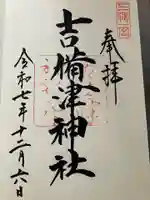 奉拝
吉備津神社
令和七年十二月六日